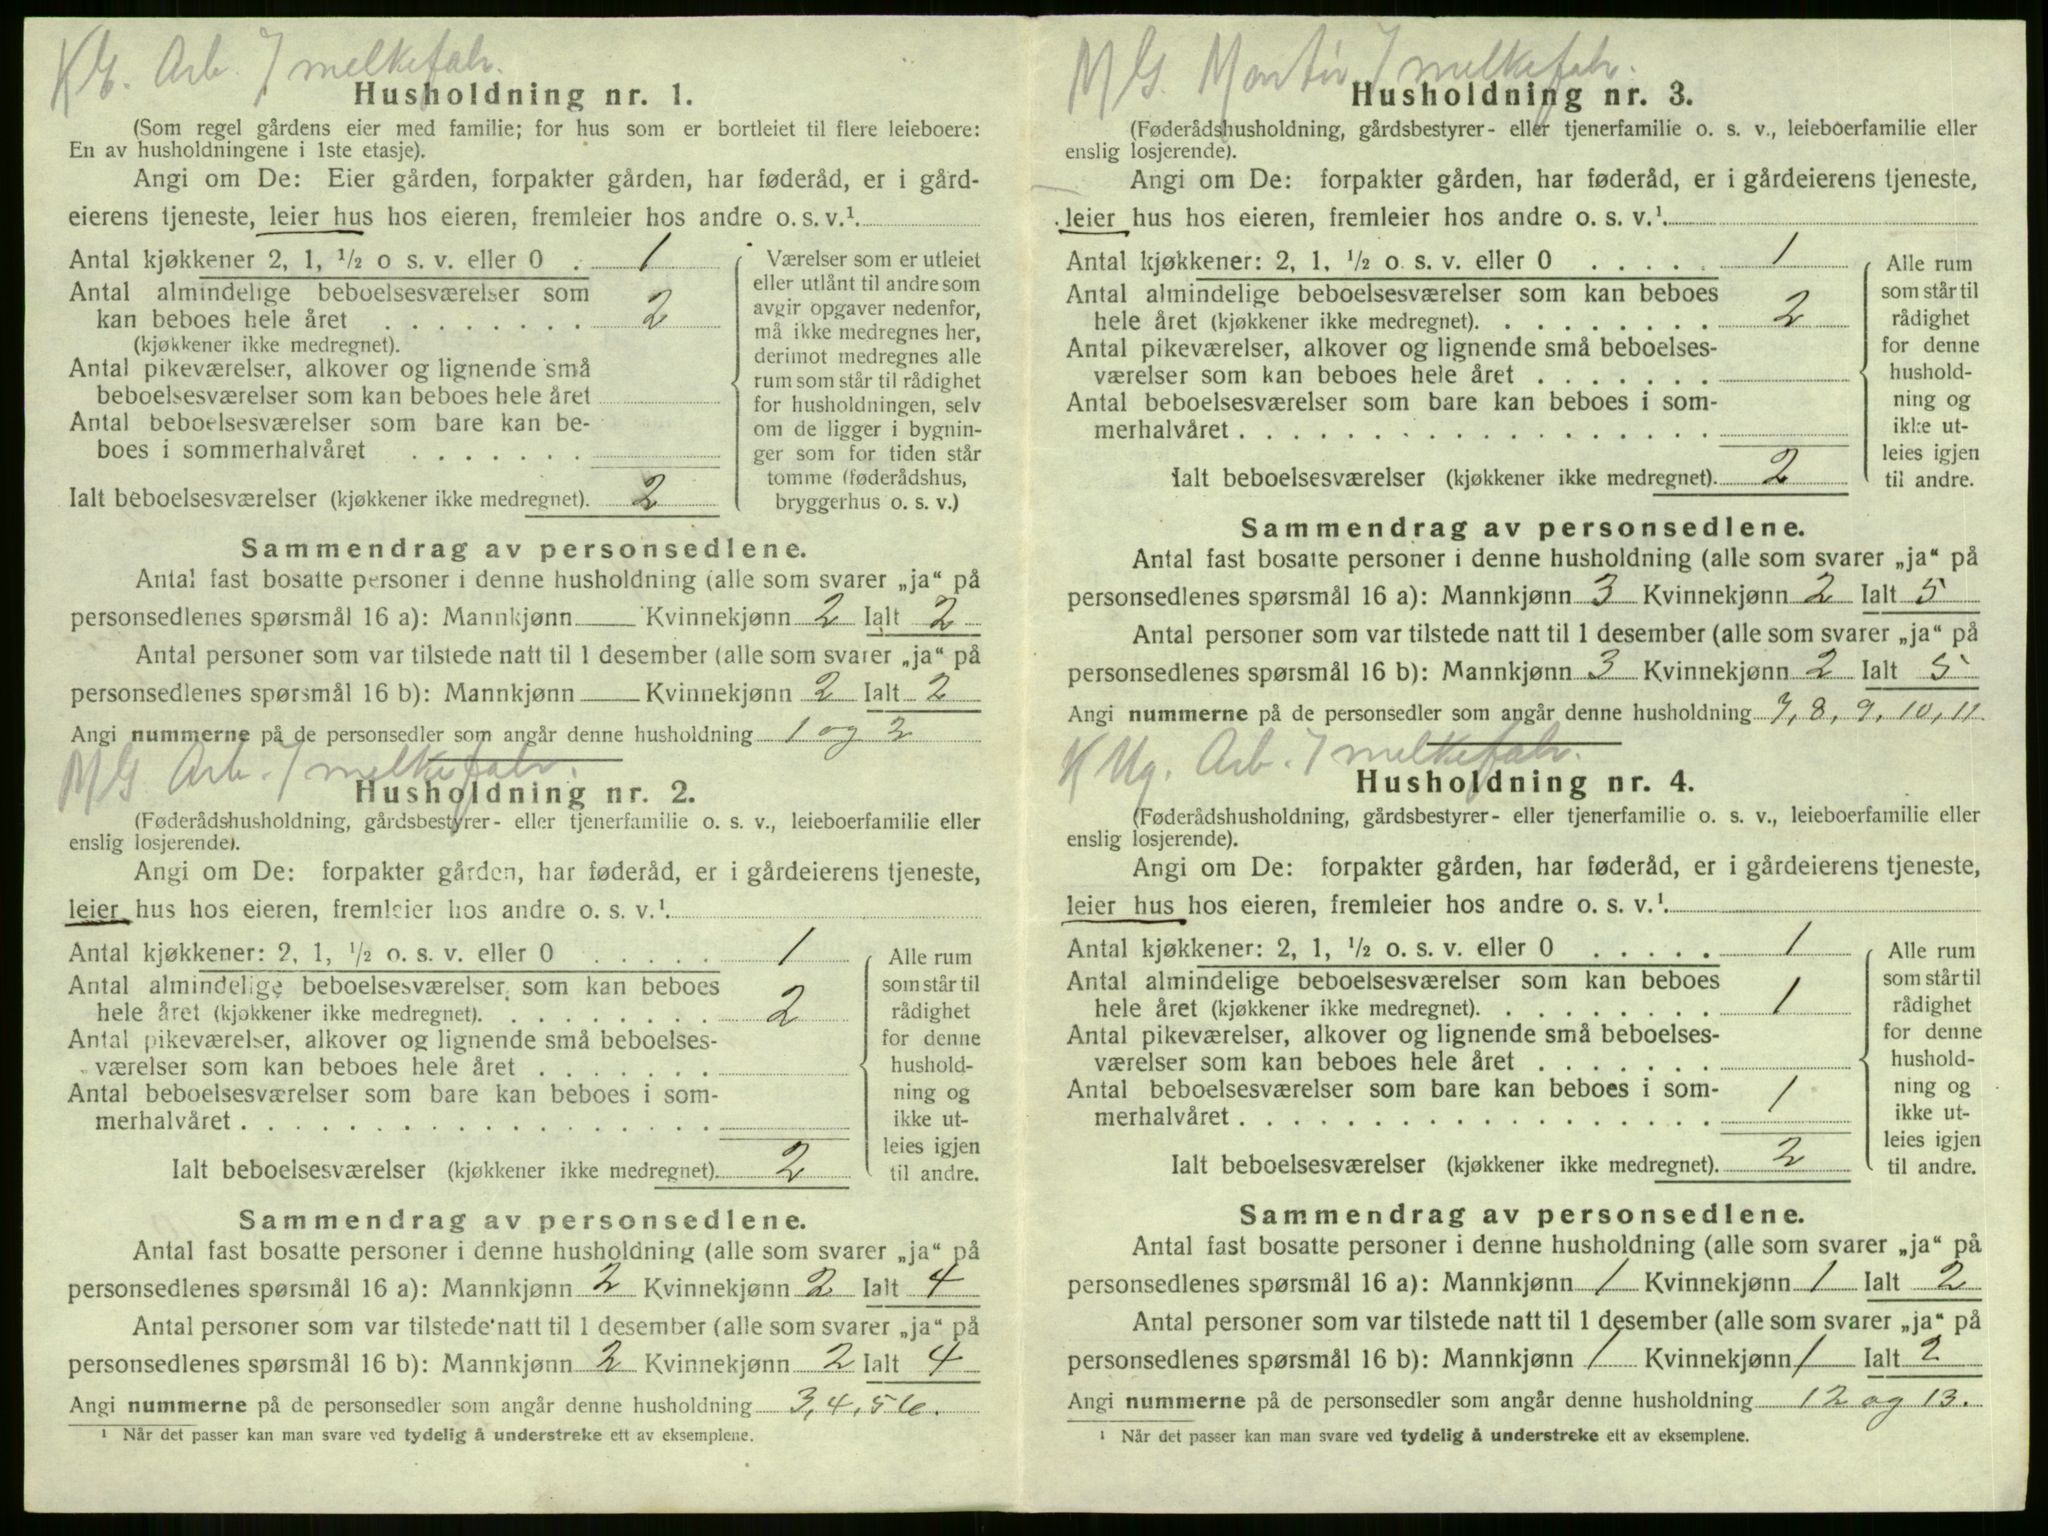 KG. Arb. I melkefabr.
Husholdning nr. 1.
(Som regel gårdens eier med familie; for hus som er bortleiet til flere leieboere:
En av husholdningene i 1ste etasje).
Angi om De: Eier gården, forpakter gården, har føderåd, er i gård-
eierens tjeneste, leier hus hos eieren, fremleier hos andre o. s. v.¹.
Antal kjøkkener 2, 1, ½ o s. v. eller 0 . 1
Antal almindelige beboelsesværelser som
kan beboes hele året . . . . . . . . 2
(kjøkkener ikke medregnet).
Antal pikeværelser, alkover og lignende små
beboelsesværelser som kan beboes hele året
Antal beboelsesværelser som bare kan be-
boes i sommerhalvåret . . . . . . .
Ialt beboelsesværelser (kjøkkener ikke medregnet). 2
Værelser som er utleiet
eller utlånt til andre som
avgir opgaver nedenfor,
må ikke medregnes her,
derimot medregnes alle
rum som står til rådighet
for husholdningen, selv
om de ligger i bygnin-
ger som for tiden står
tomme (føderådshus,
bryggerhus o. s. v.)
Sammendrag av personsedlene.
Antal fast bosatte personer i denne husholdning (alle som svarer „ja“ på
personsedlenes spørsmål 16 a): Mannkjønn — Kvinnekjønn 2 Ialt 2
Antal personer som var tilstede natt til 1 desember (alle som svarer „ja“ på
personsedlenes spørsmål 16 b): Mannkjønn — Kvinnekjønn 2 Ialt 2
Angi nummerne på de personsedler som angår denne husholdning 1 og 2
MG Arb. I melkefabr.
Husholdning nr. 2.
(Føderådshusholdning, gårdsbestyrer- eller tjenerfamilie o. s. v., leieboerfamilie eller
enslig losjerende).
Angi om De: forpakter gården, har føderåd, er i gårdeierens tjeneste,
leier hus hos eieren, fremleier hos andre o. s. v.¹.
Antal kjøkkener: 2, 1, ½ o. s. v. eller 0 . . . . . 1
Antal almindelige beboelsesværelser som kan beboes
hele året (kjøkkener ikke medregnet). . . . . . . . . 2
Antal pikeværelser, alkover og lignende små beboelses-
værelser som kan beboes hele året . . . . . . .
Antal beboelsesværelser som bare kan beboes i som-
merhalvåret . . . . . . . . . . . . . . . . . .
Ialt beboelsesværelser (kjøkkener ikke medregnet). 2
Alle rum
som står til
rådighet
for denne
hushold-
ning og
ikke ut-
leies igjen
til andre.
Sammendrag av personsedlene.
Antal fast bosatte personer i denne husholdning (alle som svarer „ja“ på
personsedlenes spørsmål 16 a): Mannkjønn 2 Kvinnekjønn 2 Ialt 4
Antal personer som var tilstede natt til 1 desember (alle som svarer „ja“ på
personsedlenes spørsmål 16 b): Mannkjønn 2 Kvinnekjønn 2 Ialt 4
Angi nummerne på de personsedler som angår denne husholdning 3, 4, 5 6.
¹ Når det passer kan man svare ved tydelig å understreke ett av eksemplene.
MG. Montør I melkefabr.
Husholdning nr. 3.
(Føderådshusholdning, gårdsbestyrer- eller tjenerfamilie o. s. v., leieboerfamilie eller
enslig losjerende).
Angi om De: forpakter gården, har føderåd, er i gårdeierens tjeneste,
leier hus hos eieren, fremleier hos andre o. s. v.¹.
Antal kjøkkener: 2, 1, ½ o. s. v. eller 0 . . . . . 1
Antal almindelige beboelsesværelser som kan beboes
hele året (kjøkkener ikke medregnet). . . . . . . . . 2
Antal pikeværelser, alkover og lignende små beboelses-
værelser som kan beboes hele året . . . . . . .
Antal beboelsesværelser som bare kan beboes i som-
merhalvåret . . . . . . . . . . . . . . . . . .
Ialt beboelsesværelser (kjøkkener ikke medregnet). 2
Alle rum
som står til
rådighet
for denne
hushold-
ning og
ikke ut-
leies igjen
til andre.
Sammendrag av personsedlene.
Antal fast bosatte personer i denne husholdning (alle som svarer „ja“ på
personsedlenes spørsmål 16 a): Mannkjønn 3 Kvinnekjønn 2 Ialt 5
Antal personer som var tilstede natt til 1 desember (alle som svarer „ja“ på
personsedlenes spørsmål 16 b): Mannkjønn 3 Kvinnekjønn 2 Ialt 5
Angi nummerne på de personsedler som angår denne husholdning 7, 8, 9, 10, 11.
K Ug. Arb. I melkefabr.
Husholdning nr. 4.
(Føderådshusholdning, gårdsbestyrer- eller tjenerfamilie o. s. v., leieboerfamilie eller
enslig losjerende).
Angi om De: forpakter gården, har føderåd, er i gårdeierens tjeneste,
leier hus hos eieren, fremleier hos andre o. s. v.¹.
Antal kjøkkener: 2, 1, ½ o. s. v. eller 0 . . . . . 1
Antal almindelige beboelsesværelser som kan beboes
hele året (kjøkkener ikke medregnet). . . . . . . . . 1
Antal pikeværelser, alkover og lignende små beboelses-
værelser som kan beboes hele året . . . . . . .
Antal beboelsesværelser som bare kan beboes i som-
merhalvåret . . . . . . . . . . . . . . . . . . 1
Ialt beboelsesværelser (kjøkkener ikke medregnet). 2
Alle rum
som står til
rådighet
for denne
hushold-
ning og
ikke ut-
leies igjen
til andre.
Sammendrag av personsedlene.
Antal fast bosatte personer i denne husholdning (alle som svarer „ja“ på
personsedlenes spørsmål 16 a): Mannkjønn 1 Kvinnekjønn 1 Ialt 2
Antal personer som var tilstede natt til 1 desember (alle som svarer „ja“ på
personsedlenes spørsmål 16 b): Mannkjønn 1 Kvinnekjønn 1 Ialt 2
Angi nummerne på de personsedler som angår denne husholdning 12 og 13.
¹ Når det passer kan man svare ved tydelig å understreke ett av eksemplene.